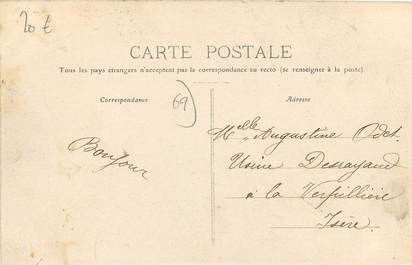 20 €
CARTE POSTALE
Tous les pays étrangers n'acceptent pas la correspondance au recto (se renseigner à la poste)
Correspondance
69
Adresse
Bonjour
Melle Augustine Odet
Usine Dessayaud
à la Verpillière
Isère.